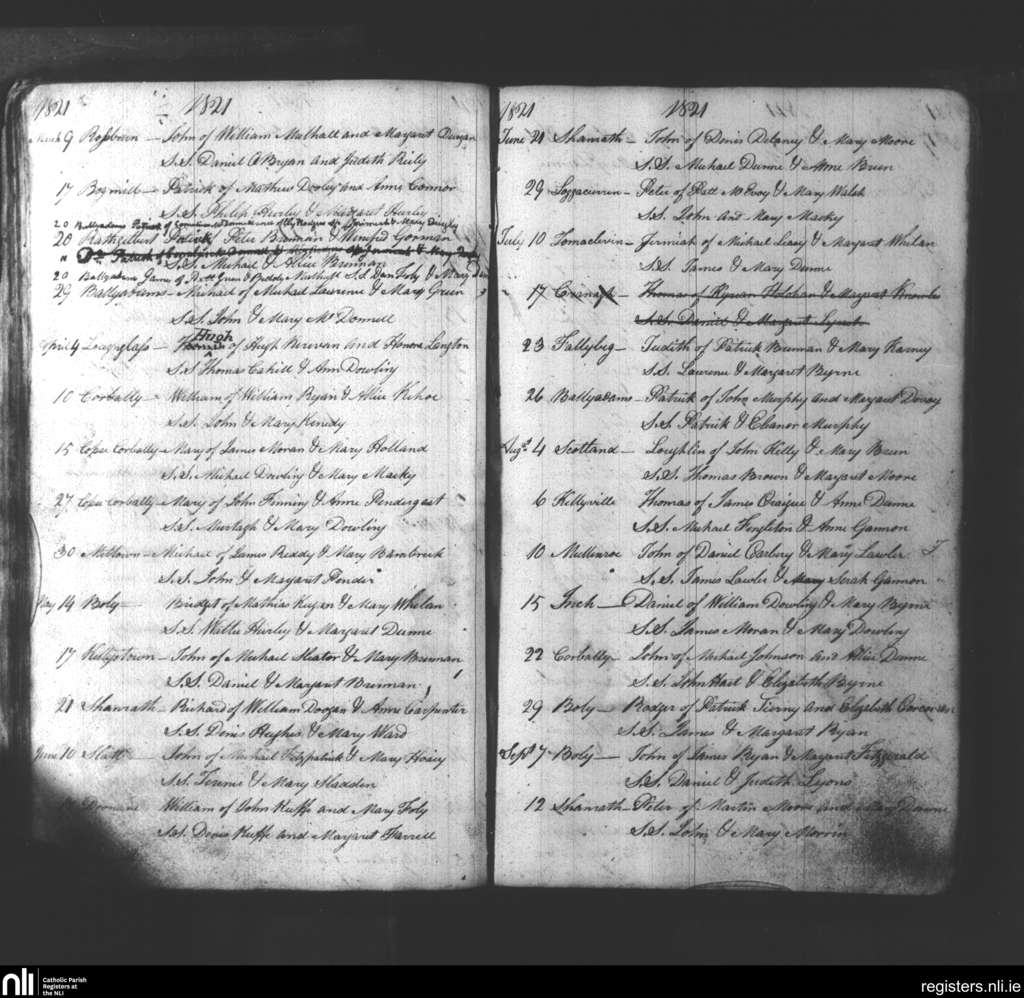 1821 1821
March 9 Rossbrien — John of William Mulhall and Margaret Duigan
S.S. Daniel O Bryan and Judith Riely
17 Bogmill — Patrick of Mathew Dooley and Anne Connor
S.S. Philip Hurley & Margaret Hurley
20 Ballyadams Patrick of
20 Rathgilbert Patrick Peter Brennan & Winifred Gorman
S.S. Michael & Alice Brennan
20 Ballyadams James of Green & Biddy S.S. Dan Foly & Mary
29 Ballyadams — Michael of Michael Lawrence & Mary Green
S.S. John & Mary McDonnell
April 4 Loughglass — Hugh of Hugh Brewan and Honora Langton
S.S Thomas Cahill & Ann Dowling
10 Corbally — William of William Ryan & Alice Kehoe
S.S. John & Mary Kenedy
15 Copse Corbally — Mary of James Moran & Mary Holland
S.S. Michael Dowling & Mary Macky
27 Copse Corbally — Mary of John Finning & Anne Pendergast
S.S. Murtagh & Mary Dowling
30 Miltown — Michael of James Reddy & Mary Brambrick
S.S. John & Margaret Ponder
May 14 Boly — Bridget of Mathias Kugan & Mary Whelan
S.S. Walter Hurley & Margaret Dunne
17 Kellystown — John of Michael Slator & Mary Brennan
S.S. Daniel & Margaret Brennan
21 Shanrath — Richard of William Doogan & Anne Carpenter
S.S. Denis Hughes & Mary Ward
June 10 Slatt — John of Michael Fitzpatrick & Mary Hoary
S.S. Fennis & Mary Sladden
William of John Kuffe and Mary Foly
S.S. Denis Kuffe and Margaret Farrell
1821 1821
June 21 Shanrath — John of Denis Delaney & Mary Moore
S.S. Michael Dunne & Anne Breen
29 Loggacurren — Peter of Patt McEvoy & Mary Walsh
S.S. John and Mary Macky
July 10 Tomaclevin — Jerimiah of Michael Leacy & Margaret Whelan
S.S. James & Mary Dunne
17 — Thomas of Kyran Holohan & Margaret Knowles
S.S. Daniel & Margaret Lynch
23 Fallybeg — Judith of Patrick Brennan & Mary Karney
S.S. Lawrence & Margaret Byrne
26 Ballyadams — Patrick of John Murphy and Margaret Doray
S.S. Patrick & Eleanor Murphy
Augst 4 Scotland — Loughlin of John Kelly & Mary Breen
S.S. Thomas Brown & Margaret Moore
6 Kellyville Thomas of James Quigue & Anne Dunne
S.S. Michael Fingleton & Anne Gannon
10 Mullinroe John of Daniel Carbery & Mary Lawler
S.S. James Lawler & Mary Serah Gannon
15 Inch — Daniel of William Dowling & Mary Byrne
S.S. James Moran & Mary Dowling
22 Corbally — John of Michael Johnson and Alice Dunne
S.S. John Hart & Elizabeth Byrne
29 Boly — Rodger of Patrick Tierny and Elizabeth Corcoran
S.S. James & Margaret Ryan
Sept 7 Boly — John of James Ryan & Margaret Fitzgerald
S.S. Daniel & Judith Lyons
12 Shanrath — Peter of Martin Moore and Mary Dunne
S.S. John & Mary Morrin
nli Catholic Parish
Registers at
the NLI
registers.nli.ie